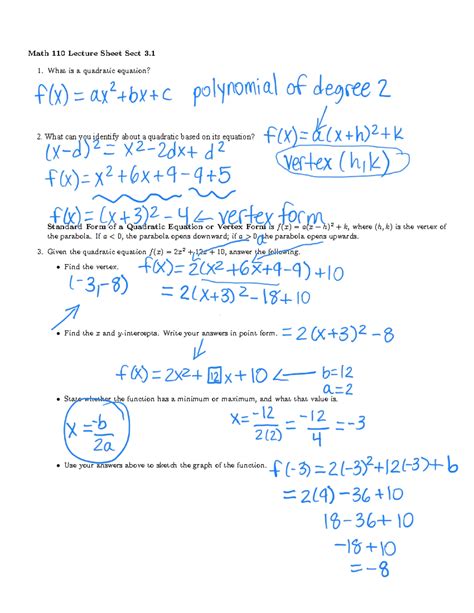 Math 110 Lecture Sheet Sect 3.1
1. What is a quadratic equation?
f(x) = ax²+bx+c polynomial of degree 2
2. What can you identify about a quadratic based on its equation? f(x)=a(x+h)²+k
(x-d)² = x²-2dx+d² vertex (h,k)
f(x) = x²+6x+9-9+5
f(x) = (x+3)²-4 ← vertex form
Standard Form of a Quadratic Equation or Vertex Form is f(x) = a(x − h)² + k, where (h, k) is the vertex of
the parabola. If a < 0, the parabola opens downward; if a > 0, the parabola opens upwards.
a
3. Given the quadratic equation f(x) = 2x² + 12x + 10, answer the following.
• Find the vertex. f(x)=2(x²+6x+9-9)+10
(-3,-8) = 2(x+3)²-18+10
• Find the x and y-intercepts. Write your answers in point form. = 2(x+3)²-8
f(x) = 2x²+12x+10 ← b=12
a=2
• State whether the function has a minimum or maximum, and what that value is.
x = -b/2a x = -12/2(2) = -12/4 = -3
• Use your answers above to sketch the graph of the function. f(-3)=2(-3)²+12(-3)+b
= 2(9)-36+10
18-36+10
-18+10
= -8